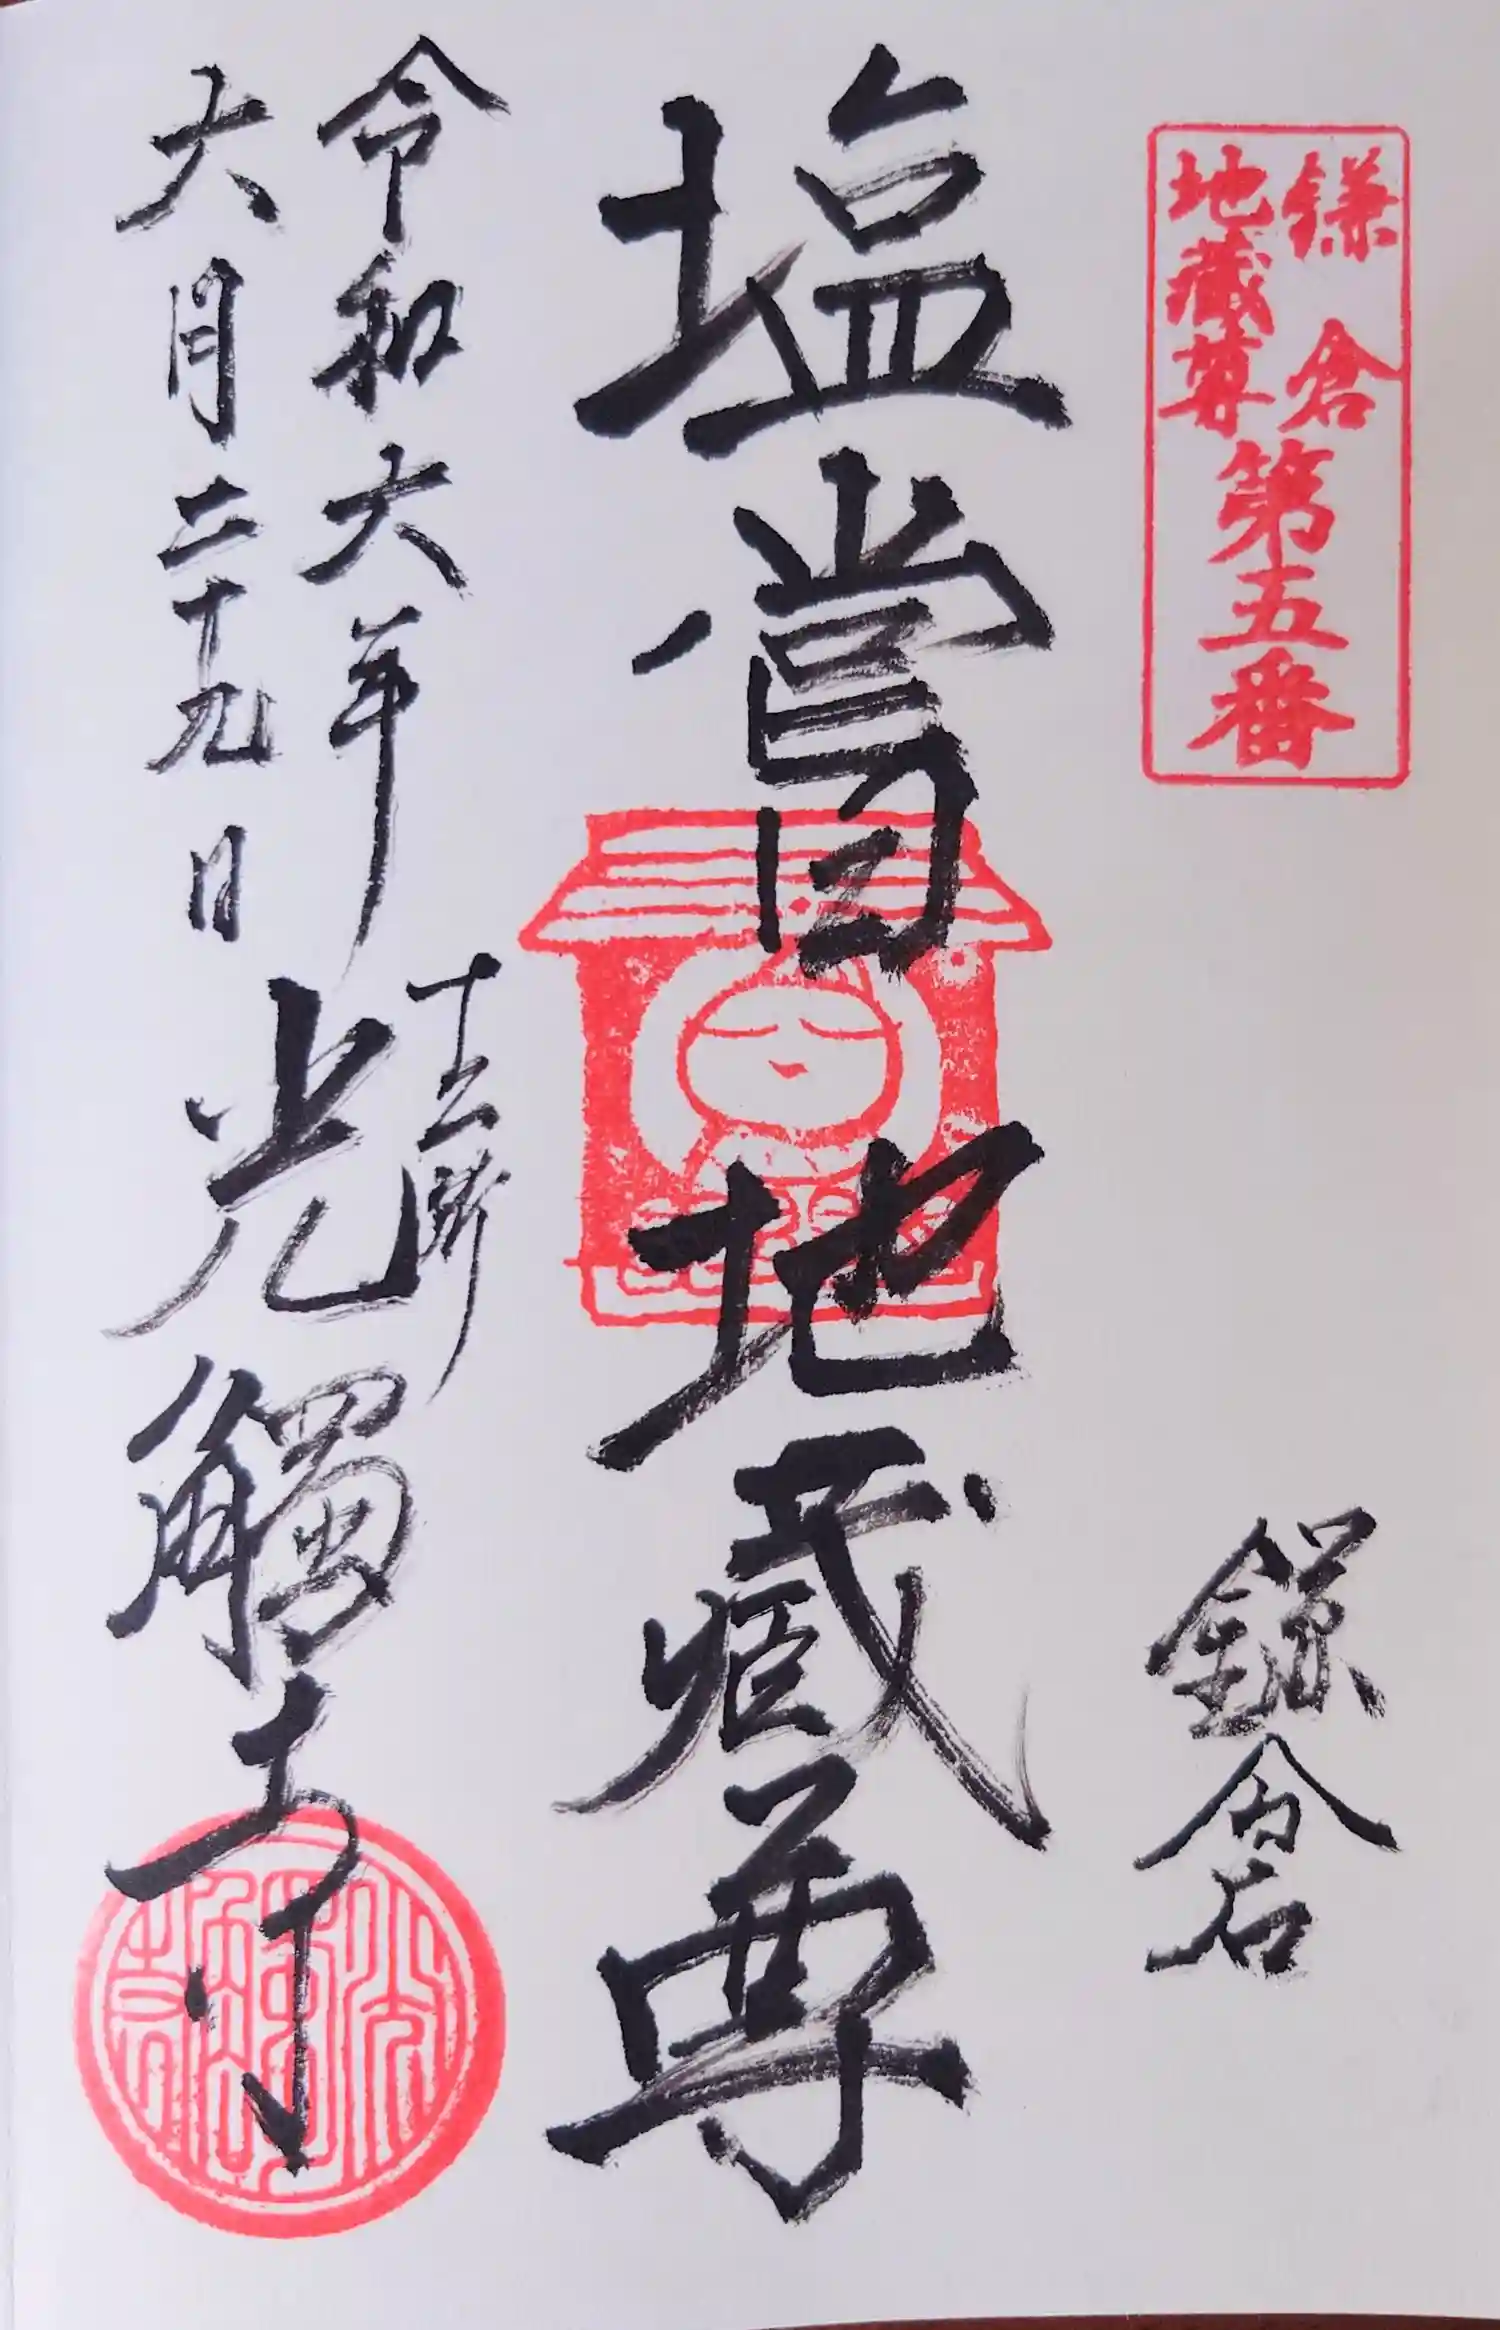 鎌倉
地蔵尊
第五番
鎌倉
塩嘗地蔵尊
十二所
光觸寺
令和六年
六月二十九日